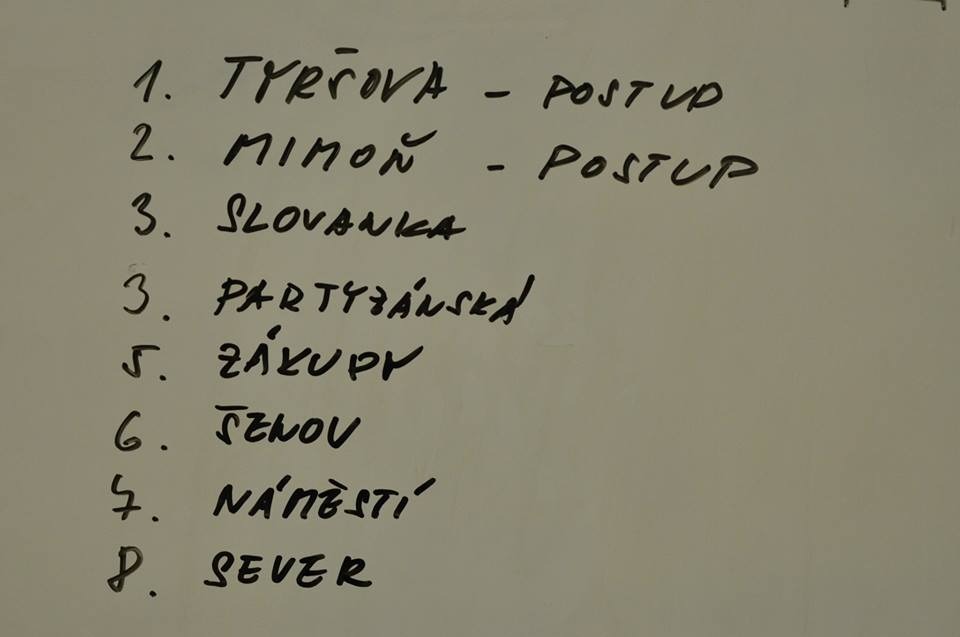 1. TYRŠOVA - POSTUP
2. MIMOŇ - POSTUP
3. SLOVANKA
3. PARTYZÁNSKÁ
5. ZÁKUPY
6. ŠENOV
7. NÁMĚSTÍ
8. SEVER